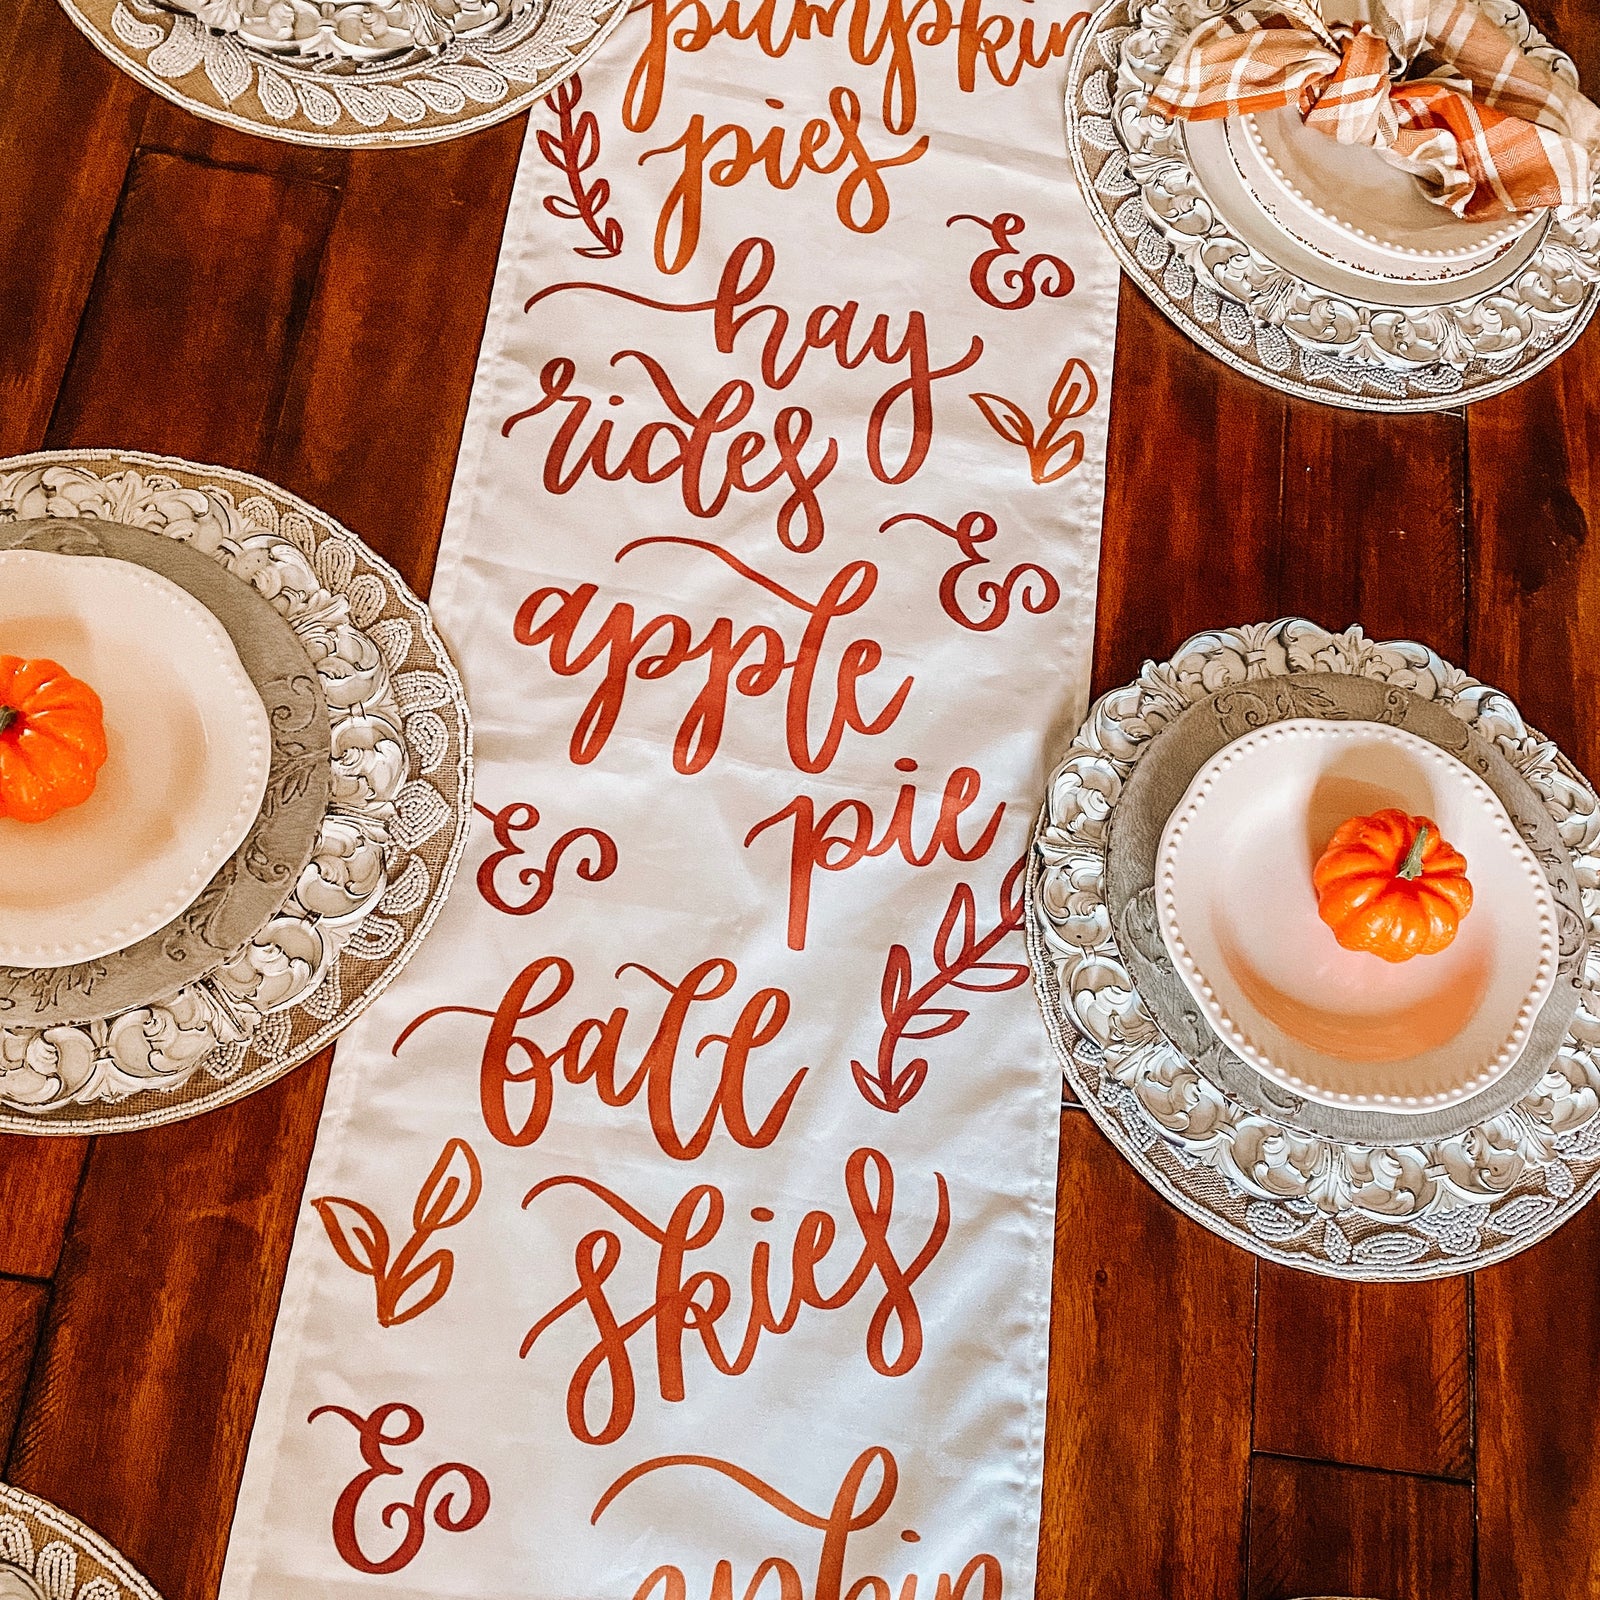 pumpkin
pies
&
hay
rides
&
apple
pie
&
fall
skies
&